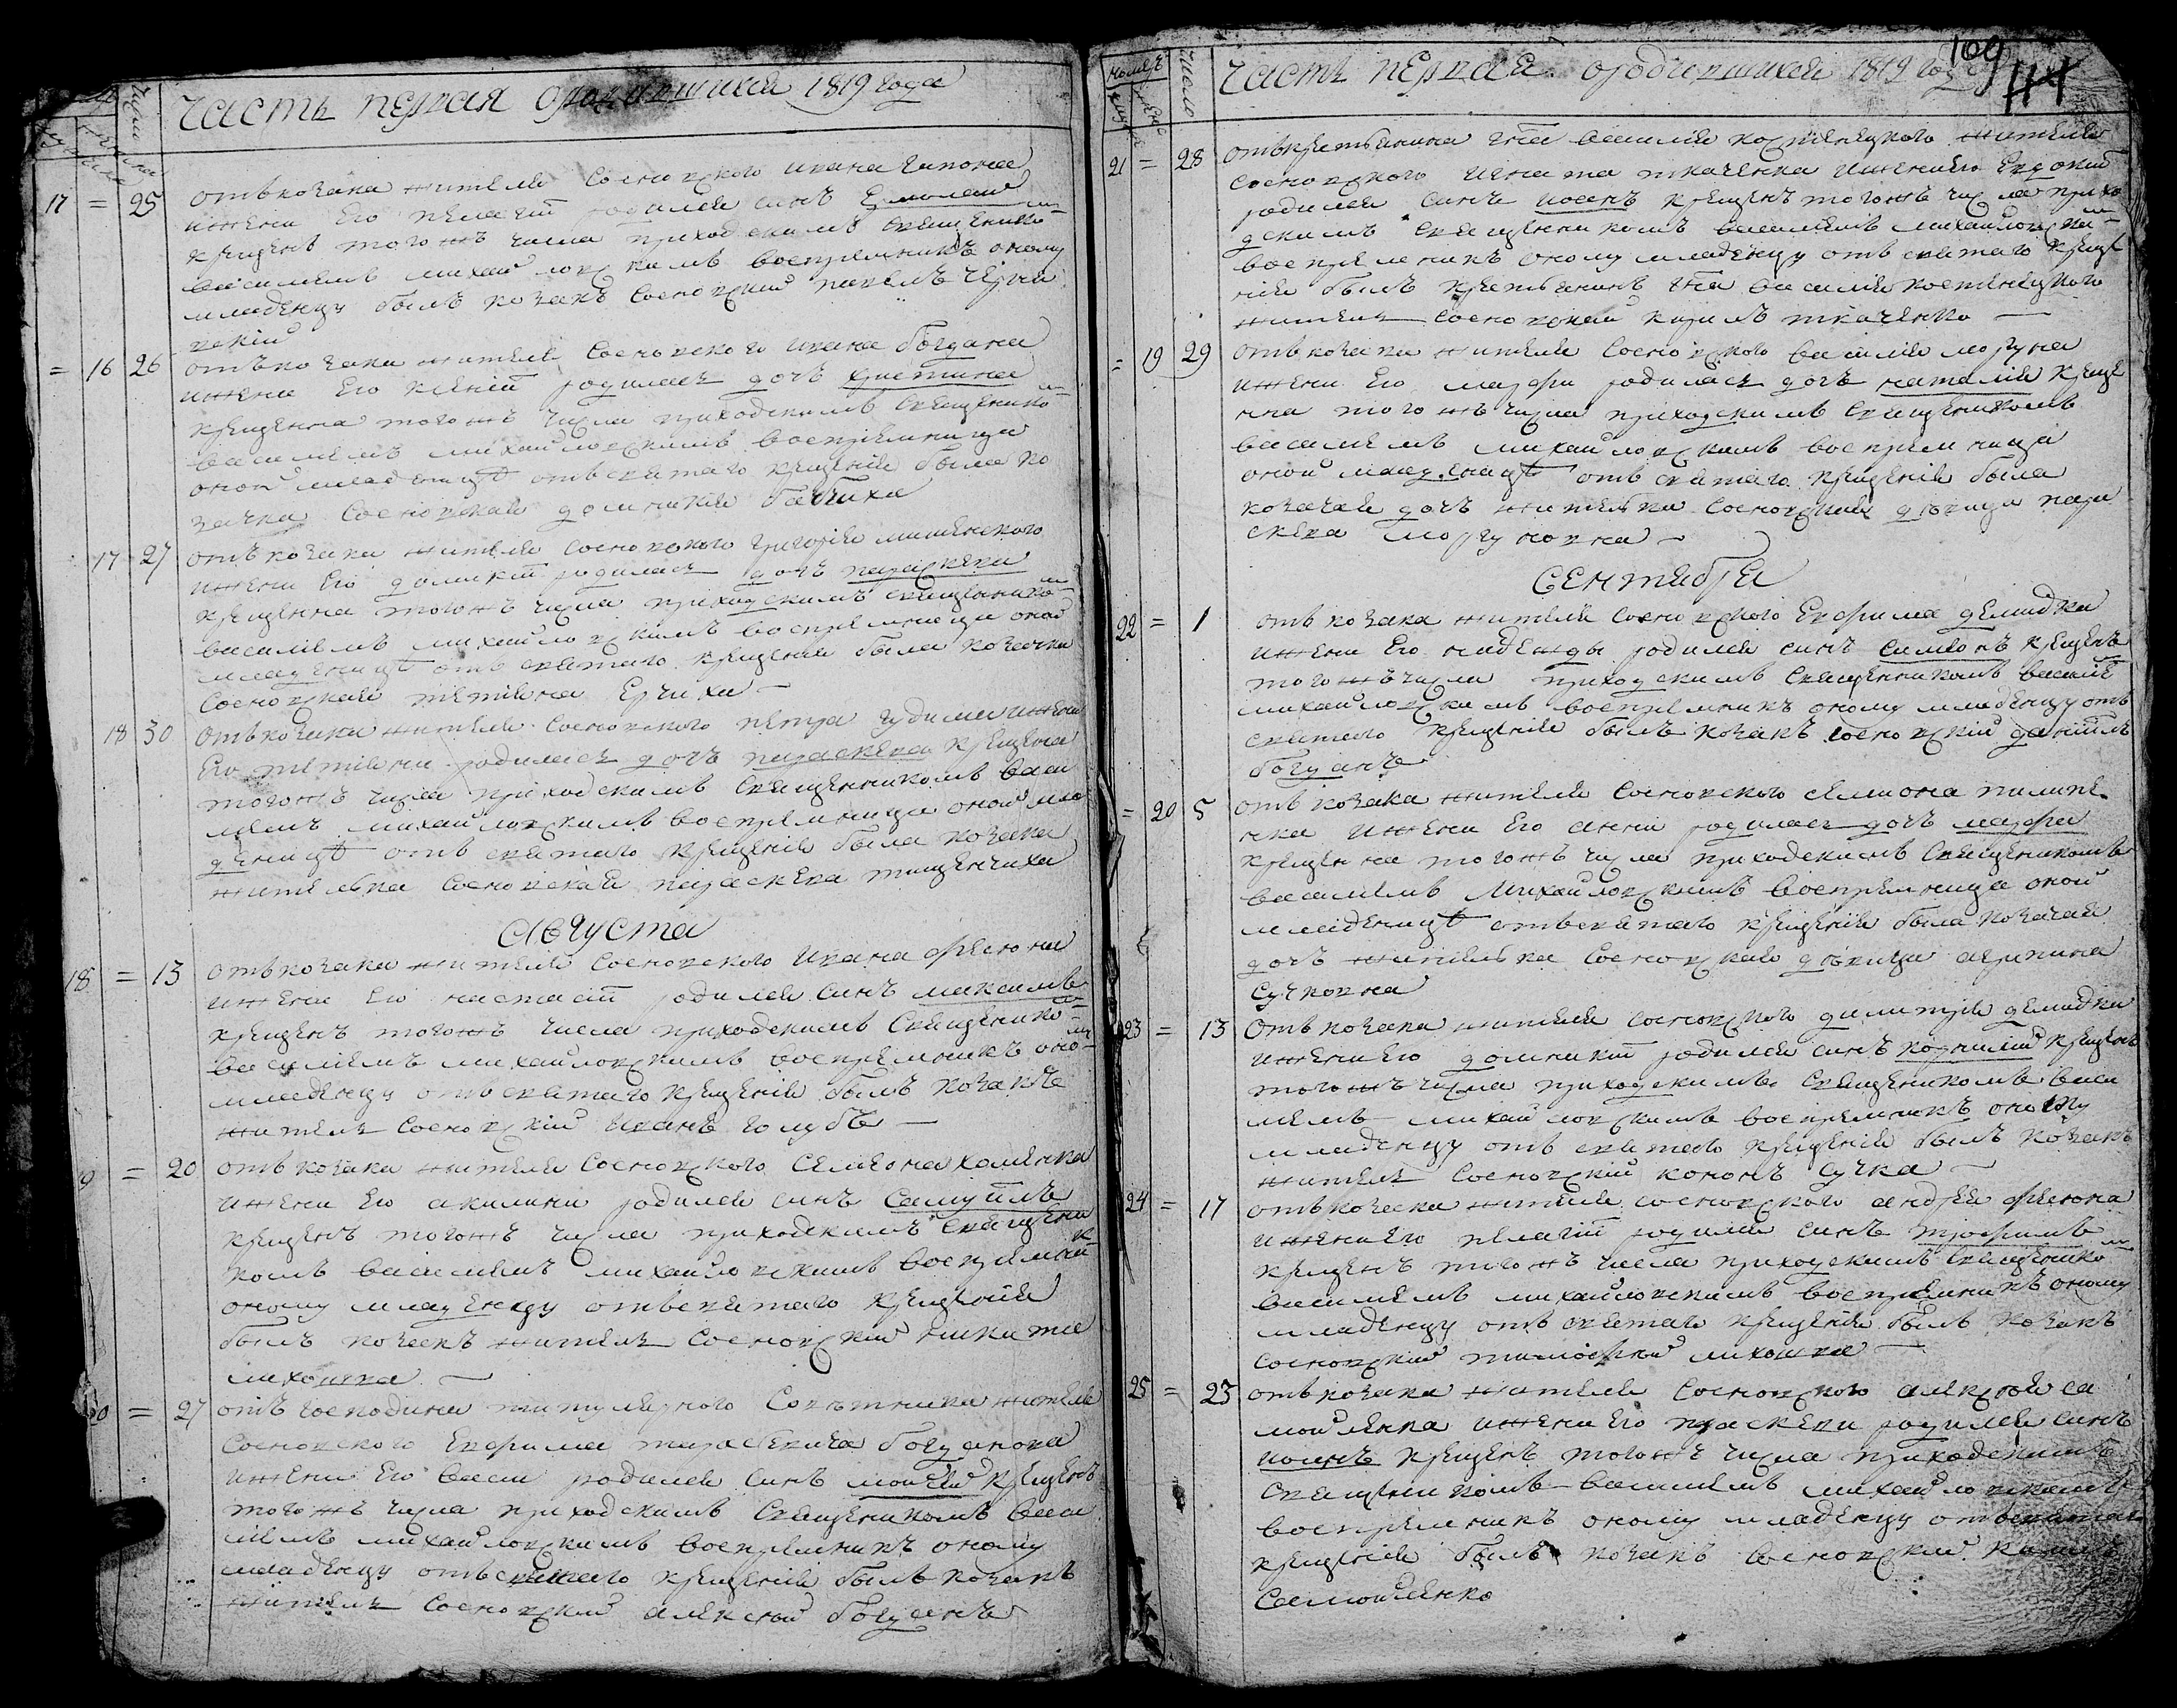 часть первая о родившихся 1819 года
17 = 25 отъ козака жителя Сосновского ивана гапона
и жени Его пелагіи родился синъ Ермолай
крещенъ того жъ числа приходскимъ Священико
василіемъ михайловскимъ воспріемникъ оному
младенцу былъ козакъ Сосновскій павелъ
вскій
= 16 26 отъ козака жителя Сосновского ивана богдана
и жени Его ксеніи родилась дочъ христина
крещенна того жъ числа приходскимъ Священико
василіемъ михайловскимъ воспріемница
оной младеницѣ отъ святаго крещенія была ко
зачка Сосновская домникія
17 27 отъ козака жителя Сосновского григорія
и жени Его домникіи родилась дочъ параскева
крещенна того жъ числа приходскимъ священико
василіемъ михайловскимъ воспріемница оной
младеницѣ отъ святаго крещенія была козачка
Сосновская тетіяна
18 30 отъ козака жителя Сосновского петра гудими и жени
Его тетіяни родилась дочъ параскева крещена
того жъ числа приходскимъ Священникомъ васи
ліемъ михайловскимъ воспріемница оной мла
деницѣ отъ святаго крещенія была козачка
жителька Сосновская параскева тищенчиха
Августа
18 = 13 отъ козака жителя Сосновского Ивана фесюна
и жени Его настасіи родился синъ максимъ
крещенъ того жъ числа приходскимъ Священико
василіемъ михайловскимъ воспріемникъ оно
младенцу отъ святаго крещенія былъ козакъ
житель Сосновскій Иванъ голубъ
= 20 отъ козака жителя Сосновского Семіона хоменка
и жени Его акилини родился синъ Самуилъ
крещенъ того жъ числа приходскимъ Священи
комъ василіемъ михайловскимъ воспріемни
оному младенцу отъ святаго крещенія
былъ козакъ житель Сосновскій никита
= 27 отъ господина титулярного Совѣтника жителя
Сосновского Евфима тарасевича богданова
и жени Его васи родился Синъ моисей крещенъ
того жъ числа приходскимъ Священикомъ васи
ліемъ михайловскимъ воспріемникъ оному
младенцу отъ святаго крещенія былъ козакъ
житель Сосновскій алексѣй богданъ
109
часть первая о родившихся 1819 года
21 = 28 отъ крестянина гна василія жителя
Сосновского игната ткаченка и жени Его Евдокіи
родился синъ иосипъ крещенъ того жъ числа прихо
дскимъ Священникомъ василіемъ михайловски
воспріемникъ оному младенцу отъ святаго креще
нія былъ крестянинъ гна василія
житель Сосновский кирилъ ткаченко
= 19 29 отъ козака жителя Сосновского василія моргуна
и жени Его марфи родилась дочъ наталія креще
нна того жъ числа приходскимъ Священикомъ
василіемъ михайловскимъ воспріемница
оной младеницѣ отъ святаго крещенія была
козачая дочъ жителька Сосновская дѣвица пара
скева моргуновна
Сентября
22 = 1 отъ козака жителя Сосновского Евфима демидка
и жени Его надежди родился синъ Симіонъ крещенъ
того жъ числа приходскимъ Священникомъ василіе
михайловскимъ воспріемникъ оному младенцу отъ
святаго крещенія былъ козакъ Сосновскій даніилъ
богданъ
= 20 5 отъ козака жителя Сосновского семиона пилипе
нка и жени Его анни родилась дочъ марфа
крещенна того жъ числа приходскимъ Священикомъ
василіемъ Михайловскимъ воспріемница оной
младеницѣ отъ святаго крещенія была козачая
дочъ жителька Сосновская дѣвица агрипина
Сучковна
23 = 13 Отъ козака жителя Сосновского димитрія демидка
и жени Его домникіи родился синъ корнилій крещенъ
того жъ числа приходскимъ Священикомъ васи
ліемъ михайловскимъ воспріемникъ оному
младенцу отъ святаго крещенія былъ козакъ
житель Сосновскій кононъ Сучка
24 = 17 отъ козака жителя Сосновского андрея фесюна
и жени Его пелагіи родился синъ трофимъ
крещенъ того жъ числа приходскимъ Священико
василіемъ михайловскимъ воспріемникъ оному
младенцу отъ святаго крещенія былъ козакъ
Сосновский тимофій
25 = 23 отъ козака жителя Сосновского алексѣя са
мойленка и жени Его параскеви родился синъ
крещенъ того жъ числа приходскимъ
Священникомъ василіемъ михайловскимъ
воспріемникъ оному младенцу отъ святаго
крещенія былъ козакъ Сосновский
Самойленко